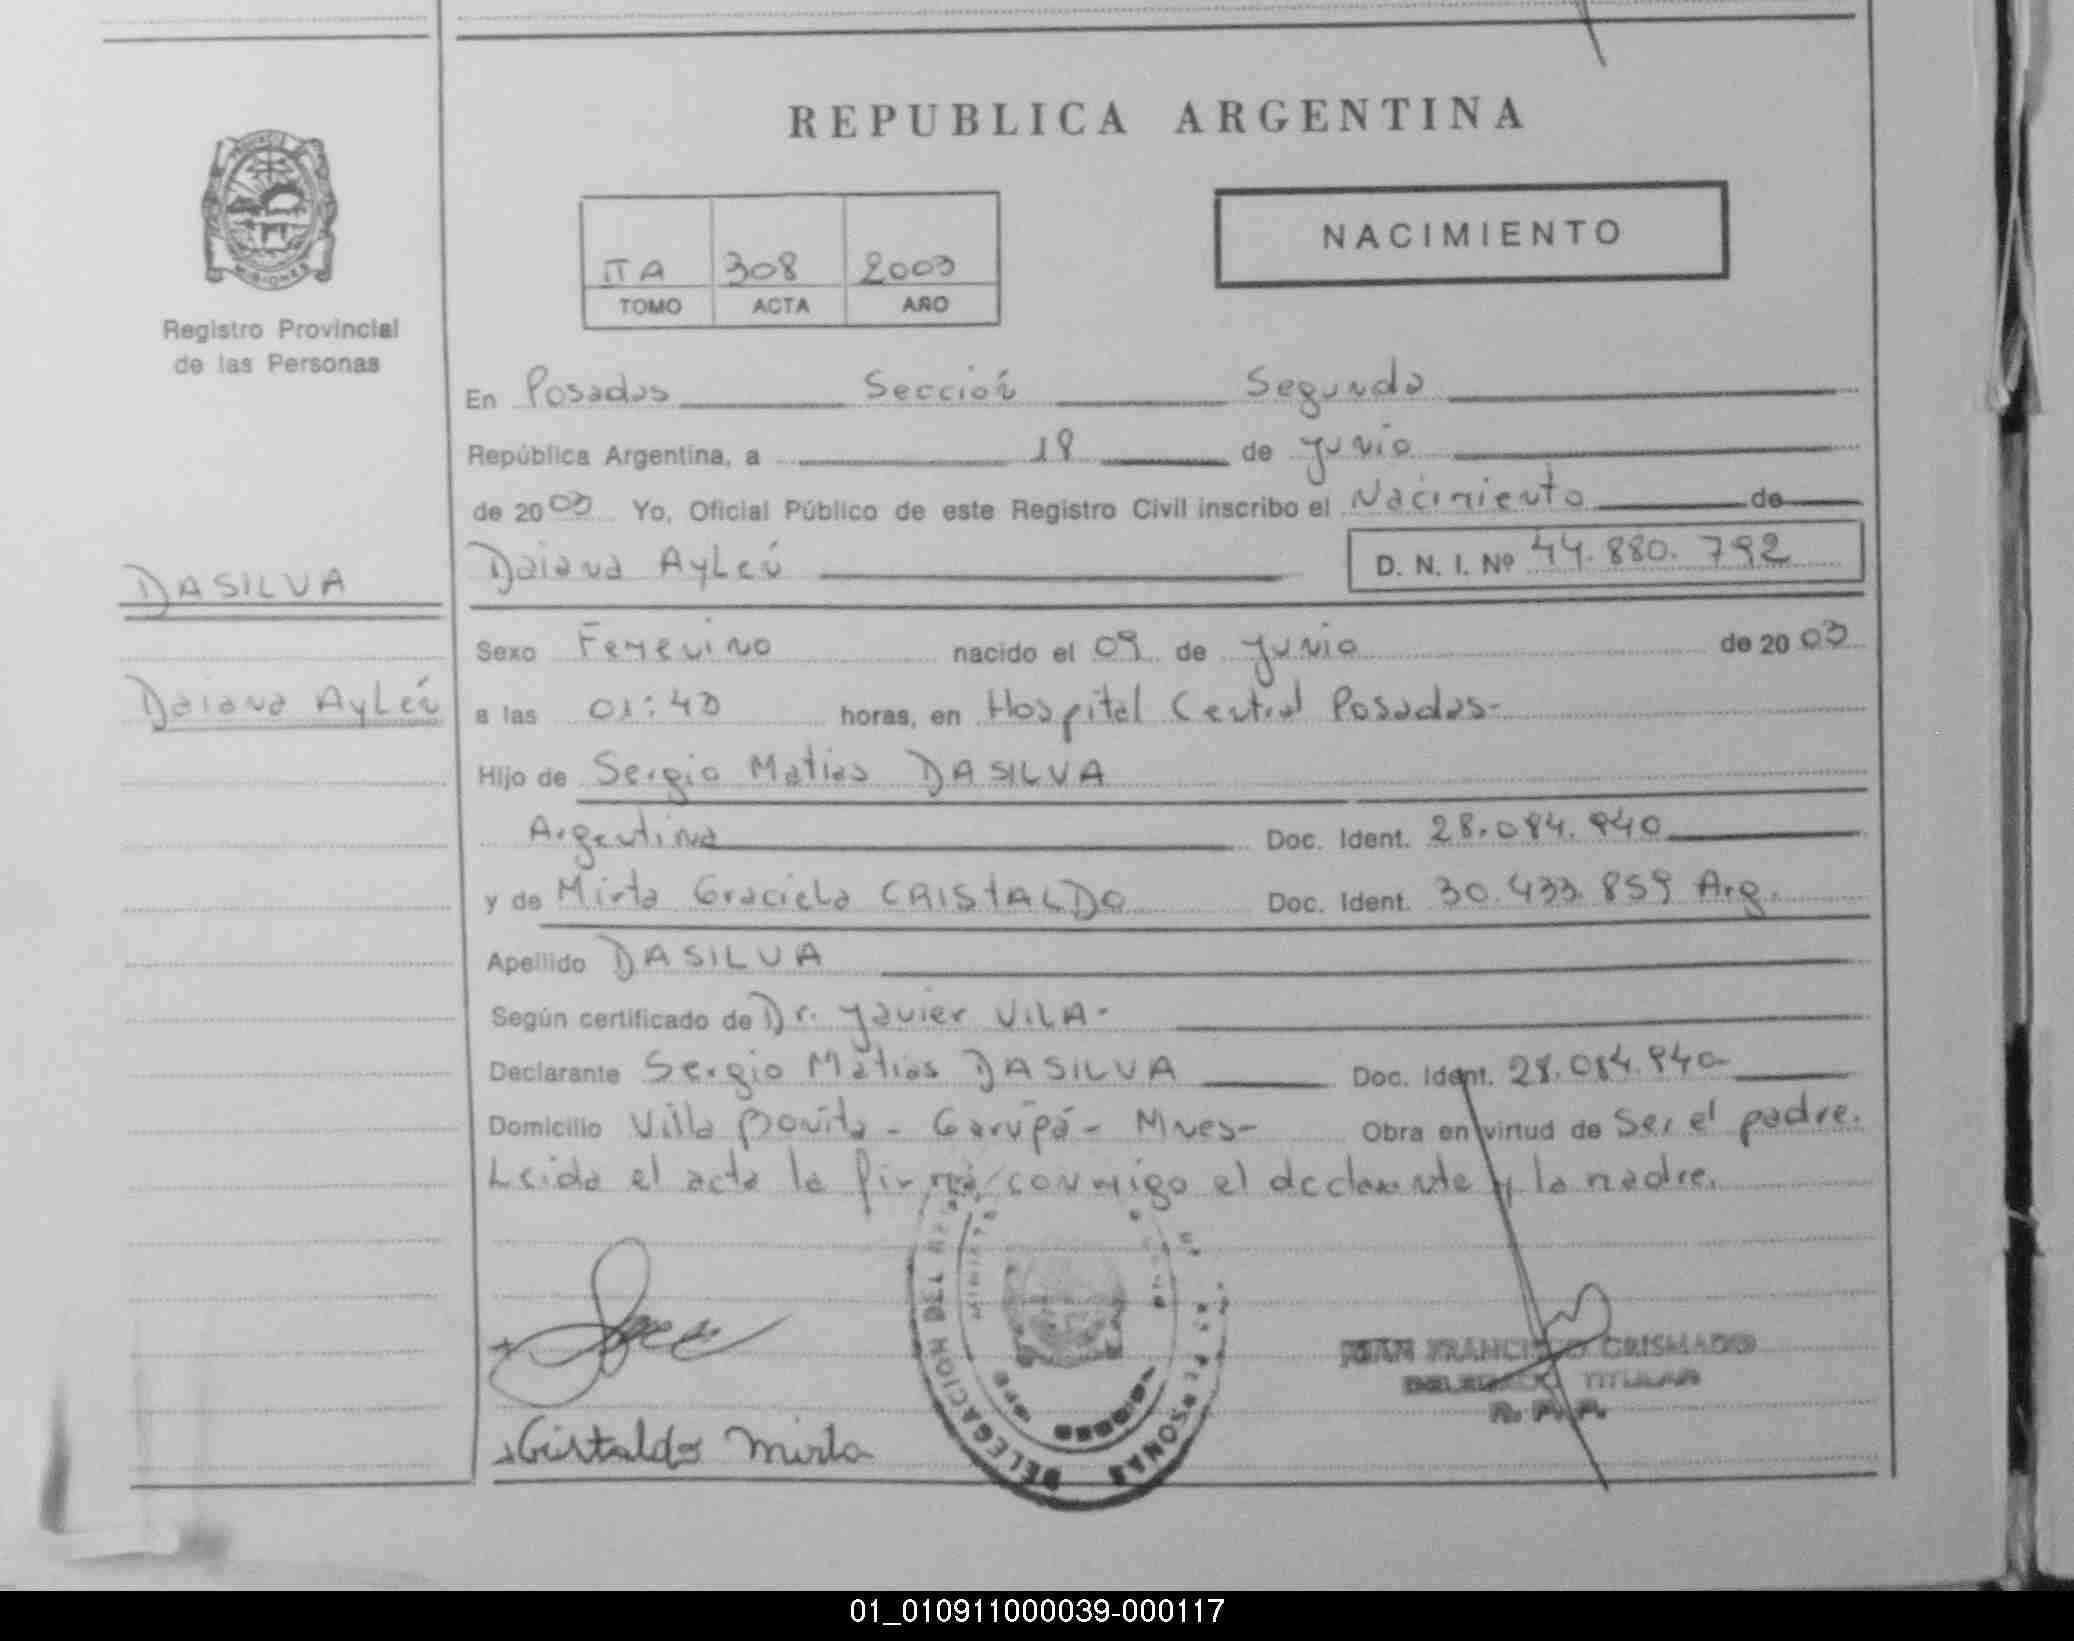 REPUBLICA ARGENTINA
NACIMIENTO
ITA 308 2003
TOMO ACTA AÑO
MISIONES
Registro Provincial
de las Personas
En Posadas Sección Segunda
República Argentina, a 18 de junio
de 2003 Yo, Oficial Público de este Registro Civil inscribo el Nacimiento de
Daiana Aylén D. N. I. Nº 44.880.792
DASILVA
Daiana Aylén
Sexo Femenino nacido el 09 de junio de 2003
a las 01:40 horas, en Hospital Central Posadas-
Hijo de Sergio Matias DASILVA
Argentina Doc. Ident. 28.084.840
y de Mirta Graciela CRISTALDO Doc. Ident. 30.433.859 Arg.
Apellido DASILVA
Según certificado de Dr. Javier VILA-
Declarante Sergio Matias DASILVA Doc. Ident. 28.084.840-
Domicilio Villa Bonita - Garupá - Mnes- Obra en virtud de Ser el padre.
Leida el acta la firma conmigo el declarante y la madre.
DELEGACION DEL PERSONAS
MISIONES
FRANCISCO CRISMADO
TITULAR
R. P. P.
Cristaldo Mirta
01_010911000039-000117